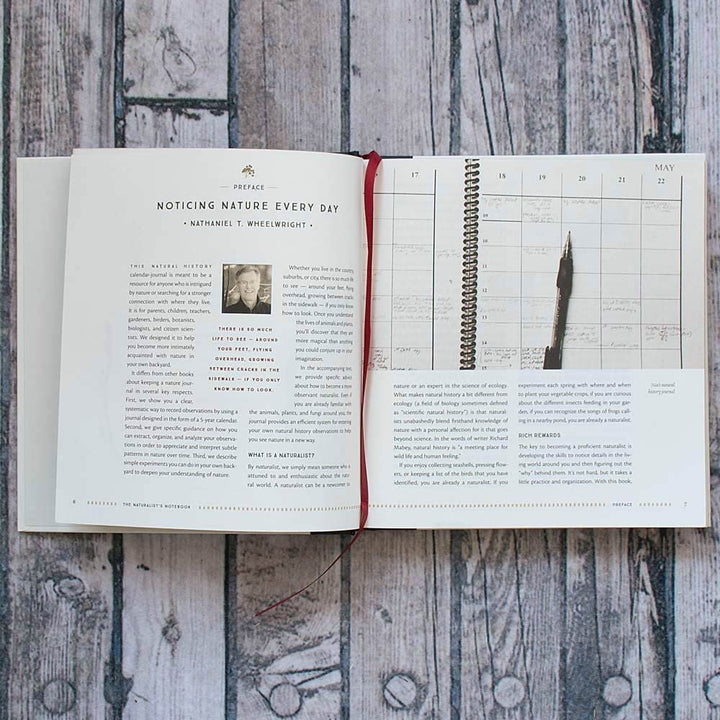 PREFACE
NOTICING NATURE EVERY DAY
• NATHANIEL T. WHEELWRIGHT •
THIS NATURAL HISTORY
calendar-journal is meant to be a
resource for anyone who is intrigued
by nature or searching for a stronger
connection with where they live.
It is for parents, children, teachers,
gardeners, birders, botanists,
biologists, and citizen scien-
tists. We designed it to help
you become more intimately
acquainted with nature in
your own backyard.
It differs from other books
about keeping a nature jour-
nal in several key respects.
First, we show you a clear,
systematic way to record observations by using a
journal designed in the form of a 5-year calendar.
Second, we give specific guidance on how you
can extract, organize, and analyze your observa-
tions in order to appreciate and interpret subtle
patterns in nature over time. Third, we describe
simple experiments you can do in your own back-
yard to deepen your understanding of nature.
THERE IS SO MUCH
LIFE TO SEE — AROUND
YOUR FEET, FLYING
OVERHEAD, GROWING
BETWEEN CRACKS IN THE
SIDEWALK — IF YOU ONLY
KNOW HOW TO LOOK.
Whether you live in the country,
suburbs, or city, there is so much life
to see — around your feet, flying
overhead, growing between cracks
in the sidewalk — if you only know
how to look. Once you understand
the lives of animals and plants,
you'll discover that they are
more magical than anything
you could conjure up in your
imagination.
In the accompanying text,
we provide specific advice
about how to become a more
observant naturalist. Even if
you are already familiar with
the animals, plants, and fungi around you, the
journal provides an efficient system for entering
your own natural history observations to help
you see nature in a new way.
WHAT IS A NATURALIST?
By naturalist, we simply mean someone who is
attuned to and enthusiastic about the natu-
ral world. A naturalist can be a newcomer to
6
THE NATURALIST'S NOTEBOOK
MAY
17
18
19
20
21
22
nature or an expert in the science of ecology.
What makes natural history a bit different from
ecology (a field of biology sometimes defined
as "scientific natural history") is that natural-
ists unabashedly blend firsthand knowledge of
nature with a personal affection for it that goes
beyond science. In the words of writer Richard
Mabey, natural history is "a meeting place for
wild life and human feeling."
If you enjoy collecting seashells, pressing flow-
ers, or keeping a list of the birds that you have
identified, you are already a naturalist. If you
experiment each spring with where and when
to plant your vegetable crops, if you are curious
about the different insects feeding in your gar-
den, if you can recognize the songs of frogs call-
ing in a nearby pond, you are already a naturalist.
RICH REWARDS
The key to becoming a proficient naturalist is
developing the skills to notice details in the liv-
ing world around you and then figuring out the
"why" behind them. It's not hard, but it takes a
little practice and organization. With this book,
Nat's natural
history journal
PREFACE
7